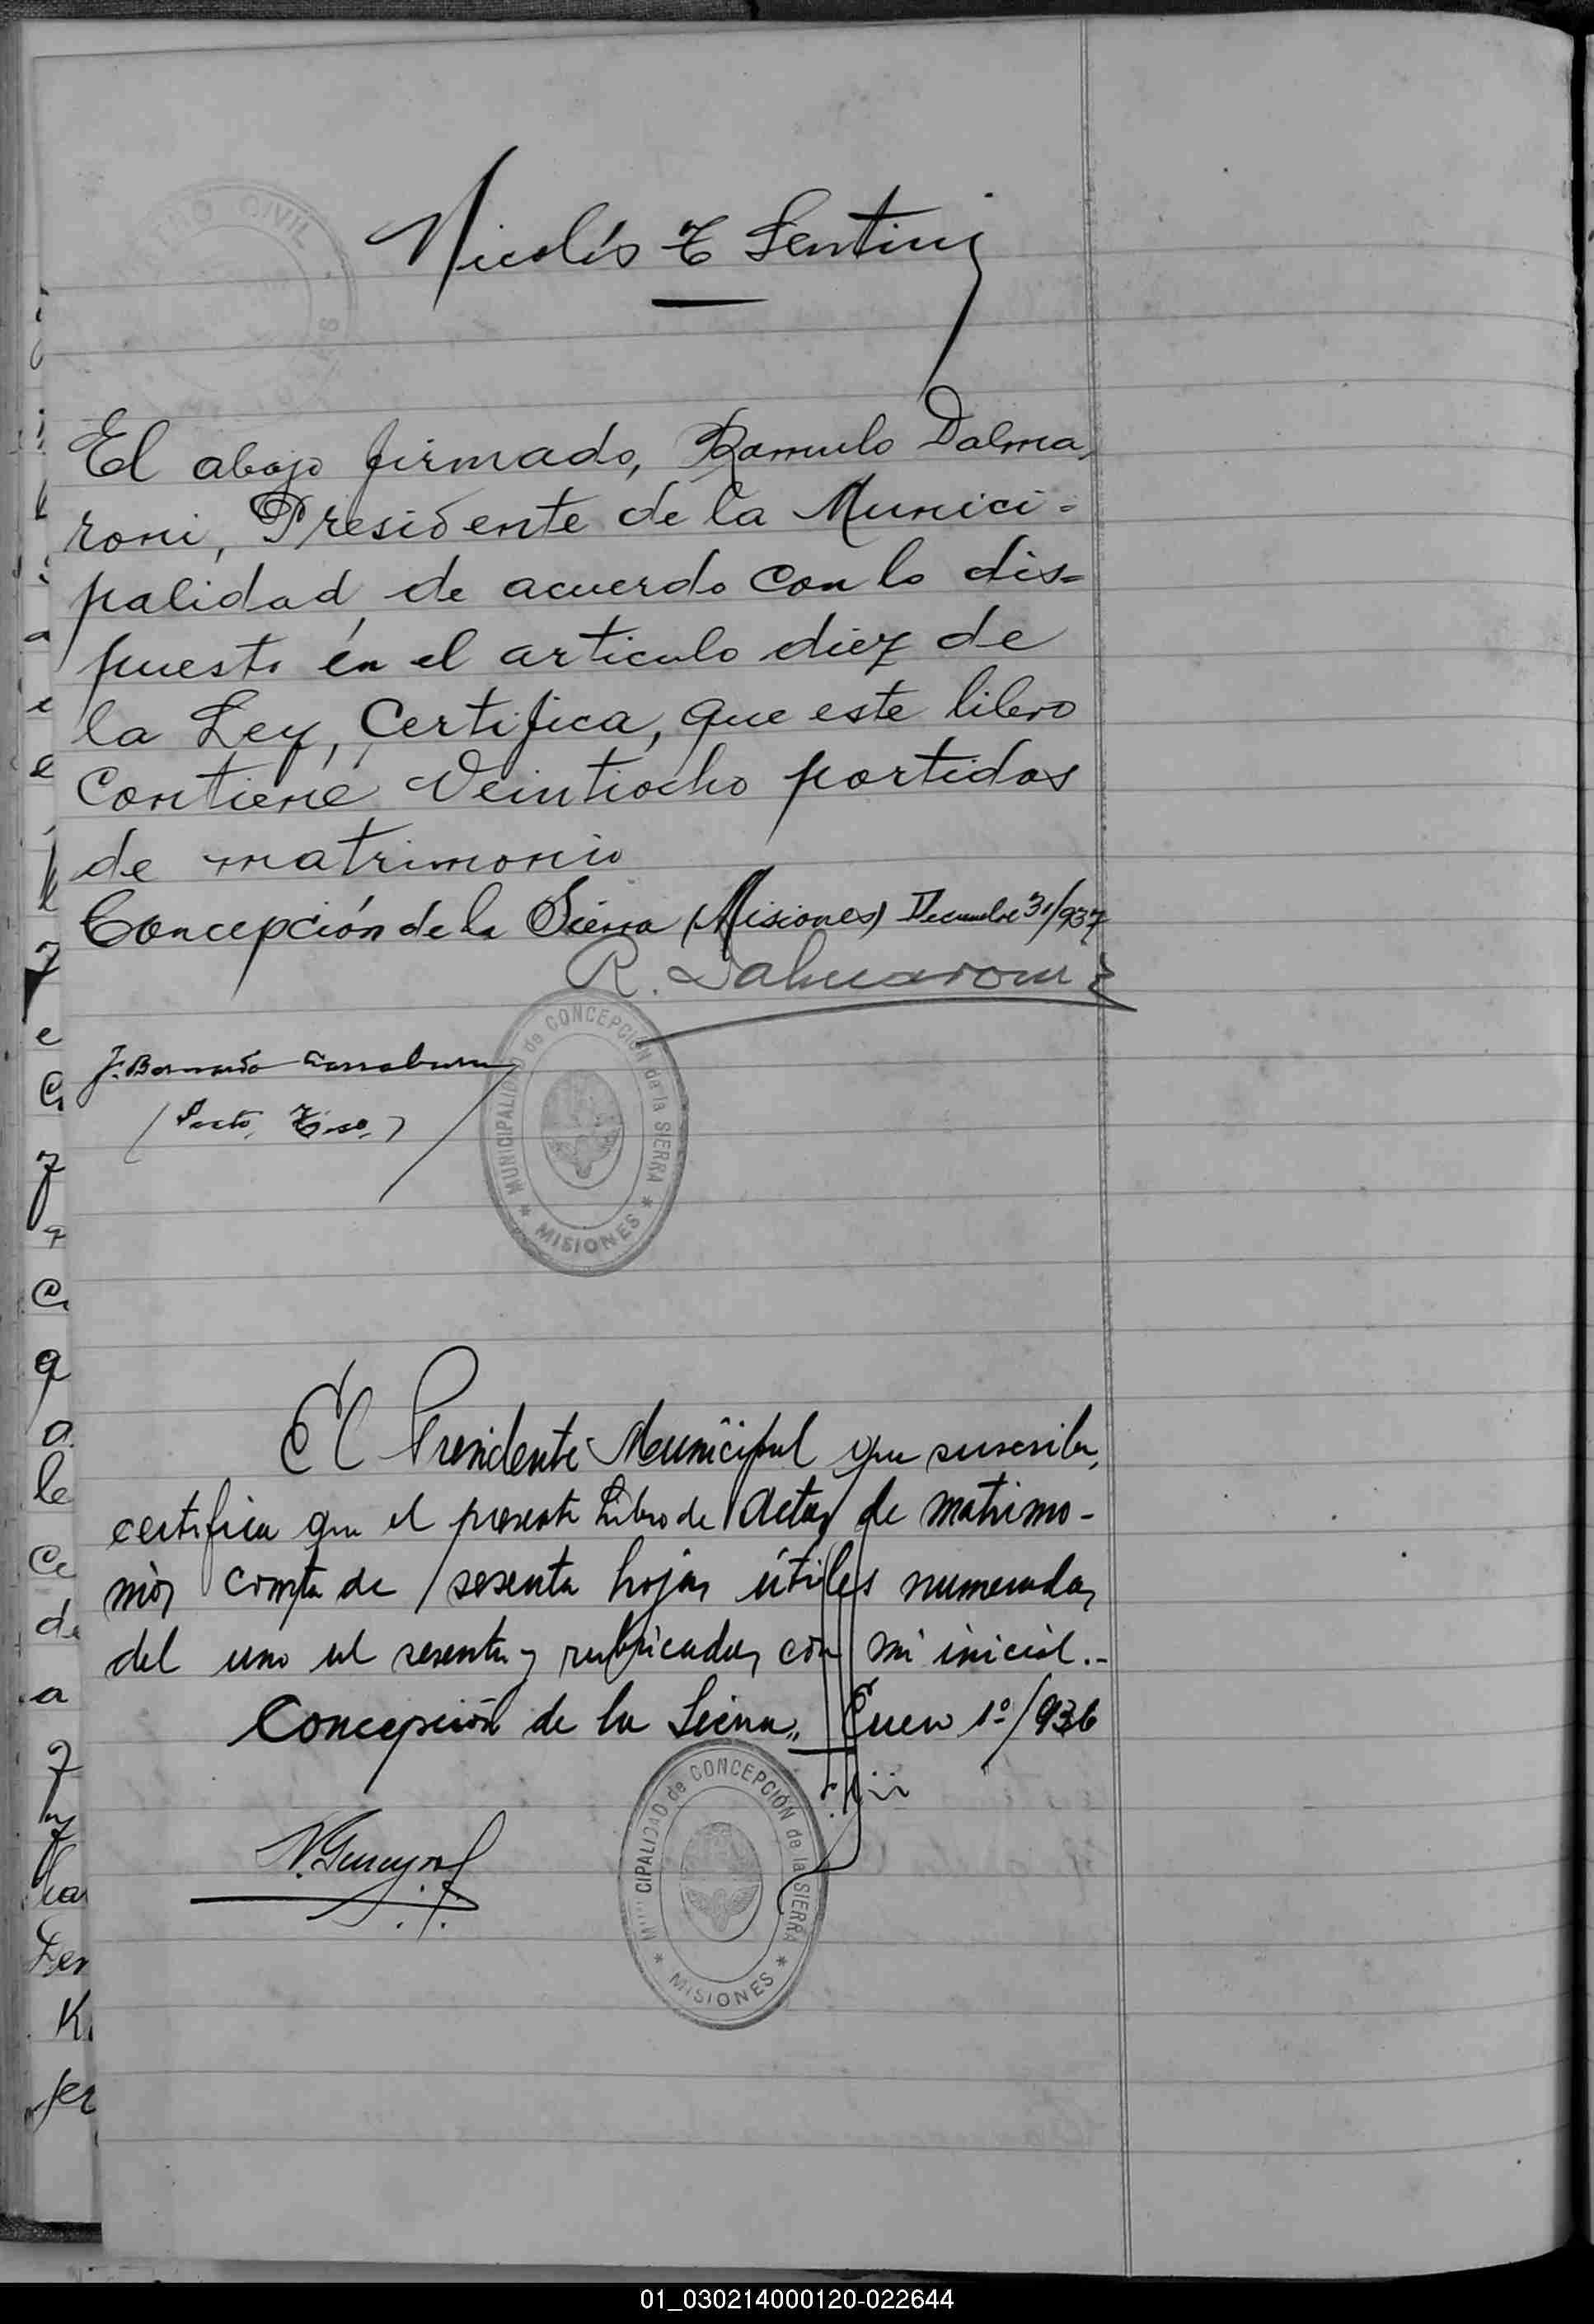 Nicolás
El abajo firmado, Romulo Dalma,
roni, Presidente de la Munici=
palidad, de acuerdo con lo dis=
puesto en el articulo diez de
la Ley, Certifica, que este libro
Contiene Veintiocho partidas
de matrimonio
Concepción de la Sierra (Misiones) Diciembre 31/937
R. Dalmaroni
MUNICIPALIDAD de CONCEPCIÓN de la SIERRA
* MISIONES *
J. Bernardo
El Presidente Municipal que suscribe,
certifica que el presente Libro de Actas de matrimo-
nios consta de sesenta hojas útiles numeradas
del uno al sesenta y rubricadas con mi inicial.-
Concepción de la Sierra, Enero 1º/936
MUNICIPALIDAD de CONCEPCIÓN de la SIERRA
* MISIONES *
01_030214000120-022644